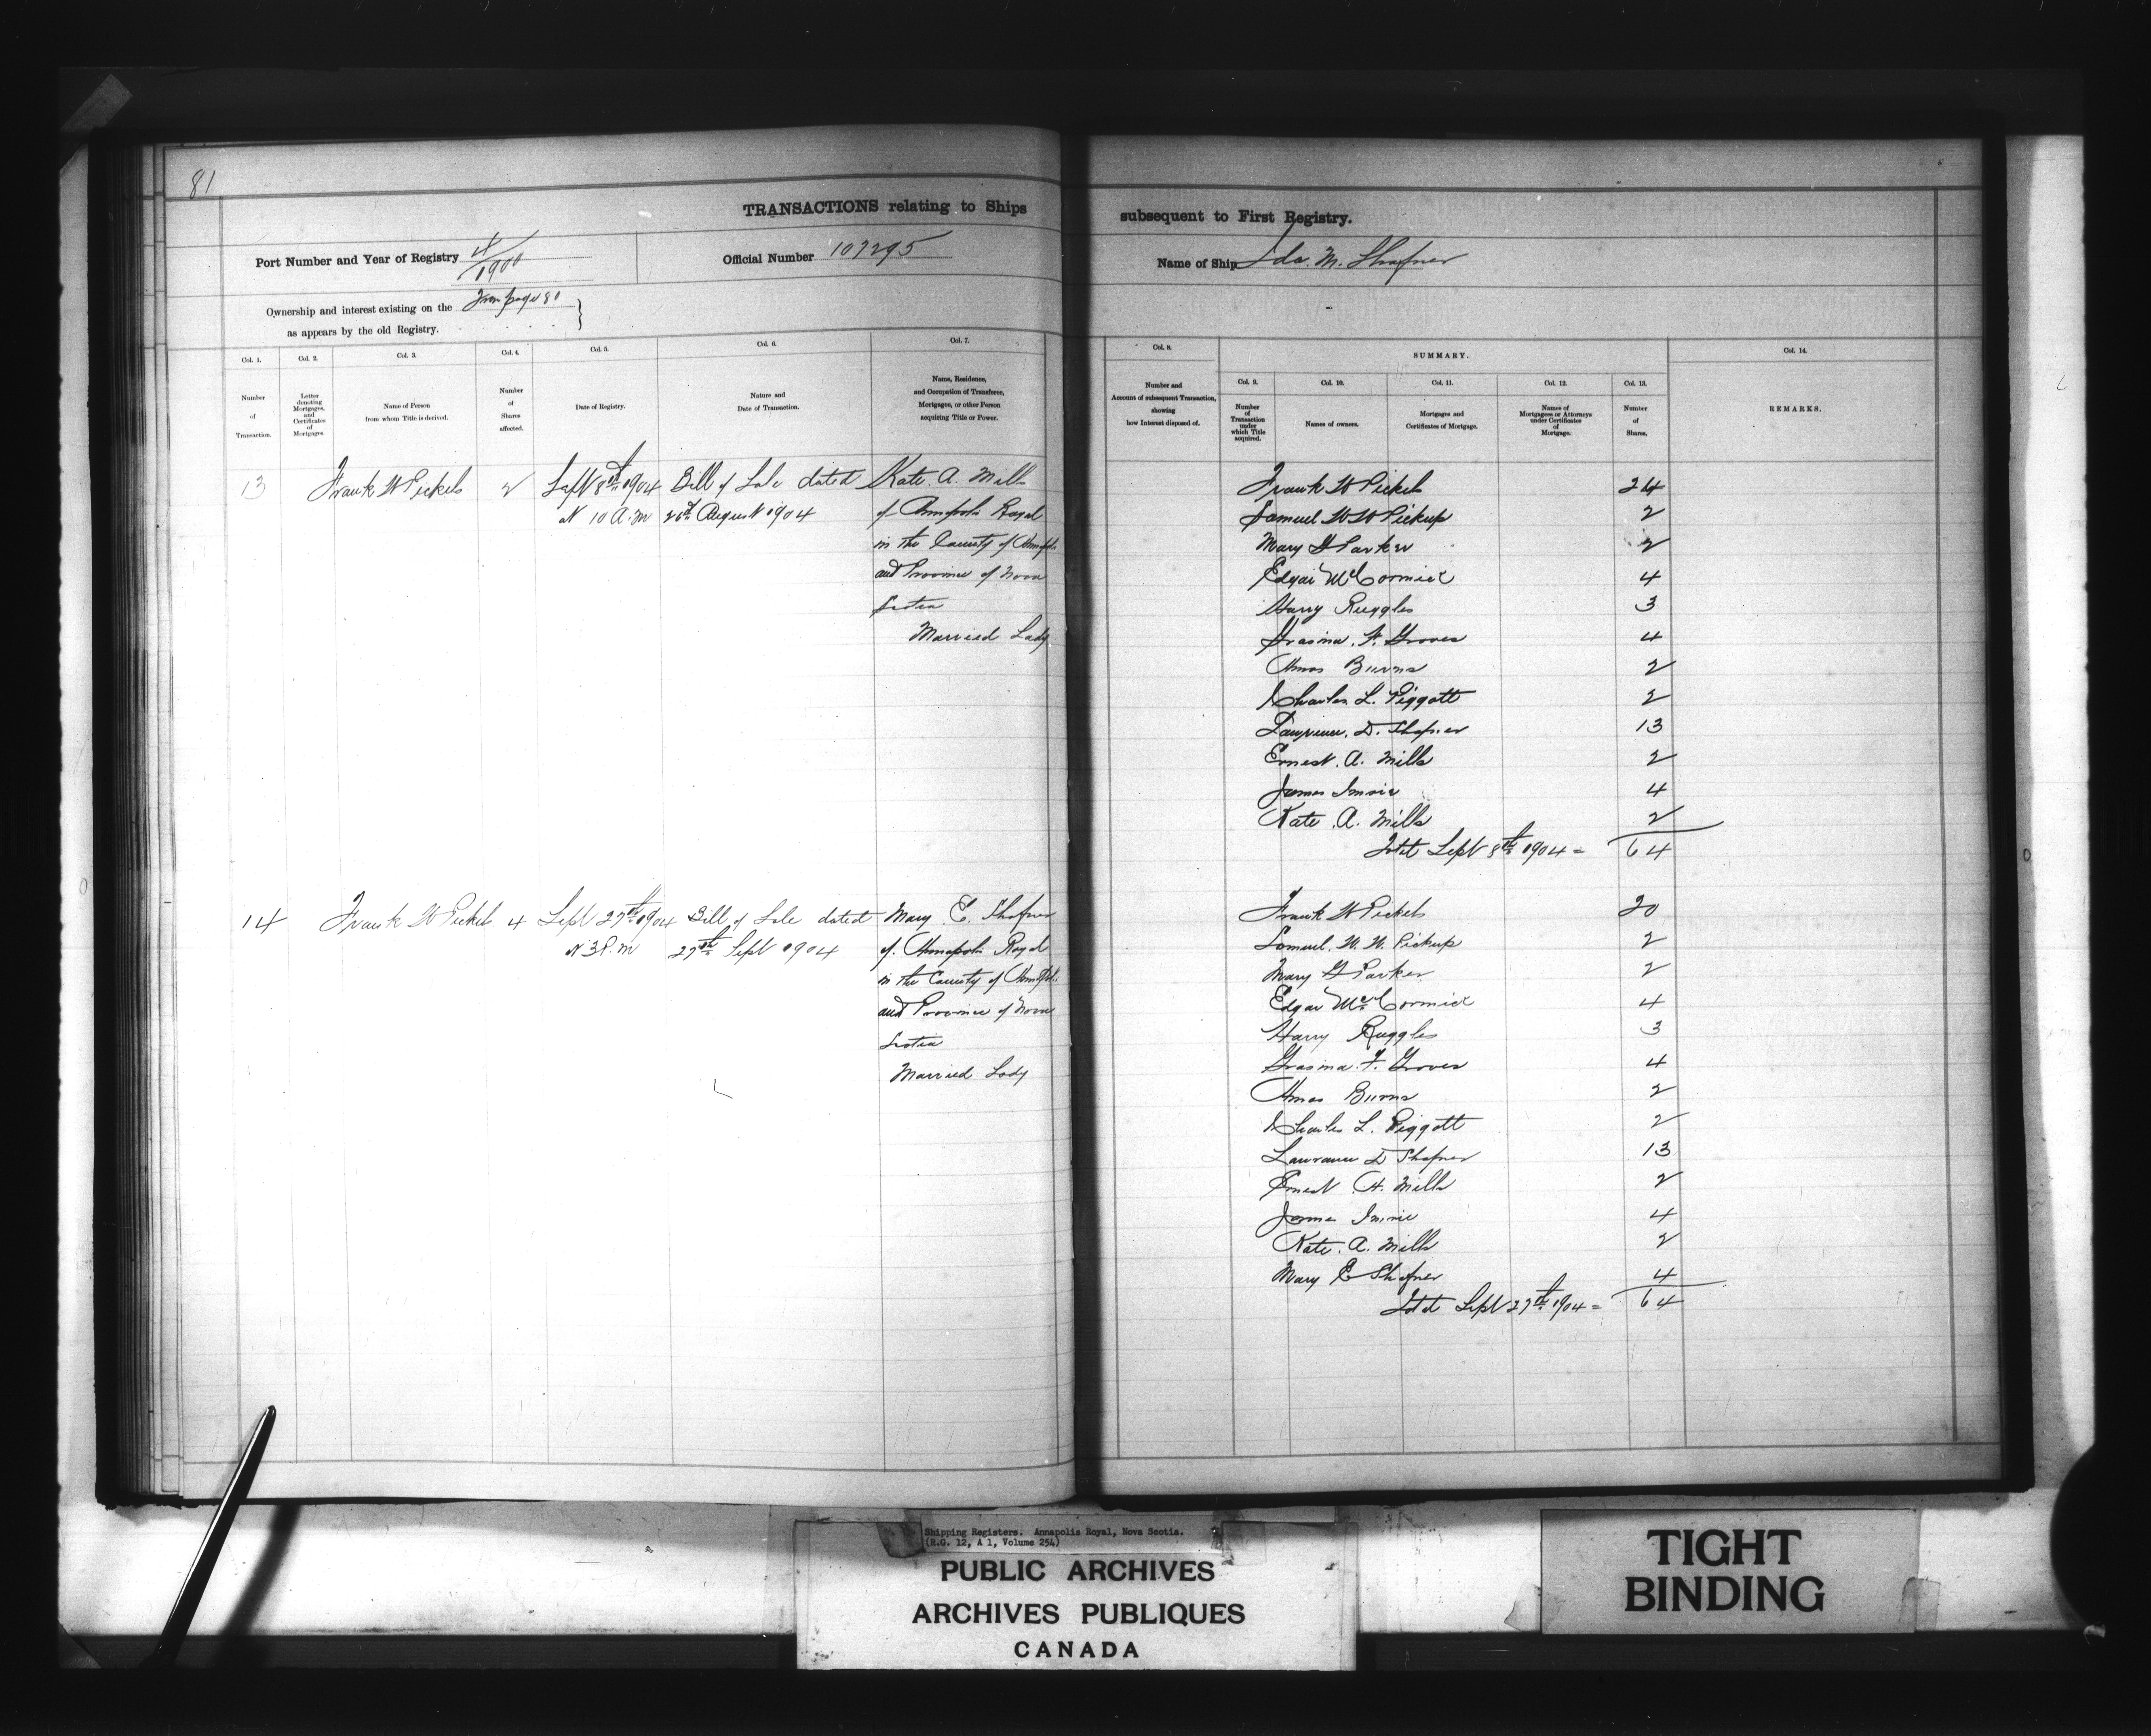 81
TRANSACTIONS relating to Ships subsequent to First Registry.
Port Number and Year of Registry 4/1900
Official Number 107295
Name of Ship Ida. M. Shafner
Ownership and interest existing on the From page 80
as appears by the old Registry.
Col. 1.
Number
of
Transaction.
Col. 2.
Letter
denoting
Mortgages,
and
Certificates
of
Mortgages.
Col. 3.
Name of Person
from whom Title is derived.
Col. 4.
Number
of
Shares
affected.
Col. 5.
Date of Registry.
Col. 6.
Nature and
Date of Transaction.
Col. 7.
Name, Residence,
and Occupation of Transferee,
Mortgagee, or other Person
acquiring Title or Power.
Col. 8.
Number and
Amount of subsequent Transaction,
showing
how Interest disposed of.
SUMMARY.
Col. 9.
Number
of
Transaction
under
which Title
acquired.
Col. 10.
Names of owners.
Col. 11.
Mortgages and
Certificates of Mortgage.
Col. 12.
Names of
Mortgagees or Attorneys
under Certificates
of
Mortgage.
Col. 13.
Number
of
Shares.
Col. 14.
REMARKS.
13 Frank W Pickels 2 Sept 8th 1904 Bill of Sale dated Kate. A. Mills
at 10 A.m 26th August 1904 of Annapolis Royal
in the County of Annapolis
and Province of Nova
Scotia
Married Lady
Frank W Pickels 24
Samuel W W Pickup 2
Mary G Parker 2
Edgar McCormick 4
Harry Ruggles 3
F. Groves 4
Amos Burns 2
Charles L. Piggott 2
Lawrence. D. Shafner 13
Ernest. A. Mills 2
James Imrie 4
Kate. A. Mills 2
Total Sept 8th 1904 = 64
14 Frank W Pickels 4 Sept 27th 1904 Bill of Sale dated Mary E. Shafner
at 3 P.m 27th Sept 1904 of Annapolis Royal
in the County of Annapolis
and Province of Nova
Scotia
Married Lady
Frank W Pickels 20
Samuel. W. W. Pickup 2
Mary G Parker 2
Edgar McCormick 4
Harry Ruggles 3
F. Groves 4
Amos Burns 2
Charles L. Piggott 2
Lawrence D Shafner 13
Ernest A. Mills 2
James Imrie 4
Kate. A. Mills 2
Mary E Shafner 4
Total Sept 27th 1904 = 64
Shipping Registers. Annapolis Royal, Nova Scotia.
(R.G. 12, A 1, Volume 254)
PUBLIC ARCHIVES
ARCHIVES PUBLIQUES
CANADA
TIGHT
BINDING